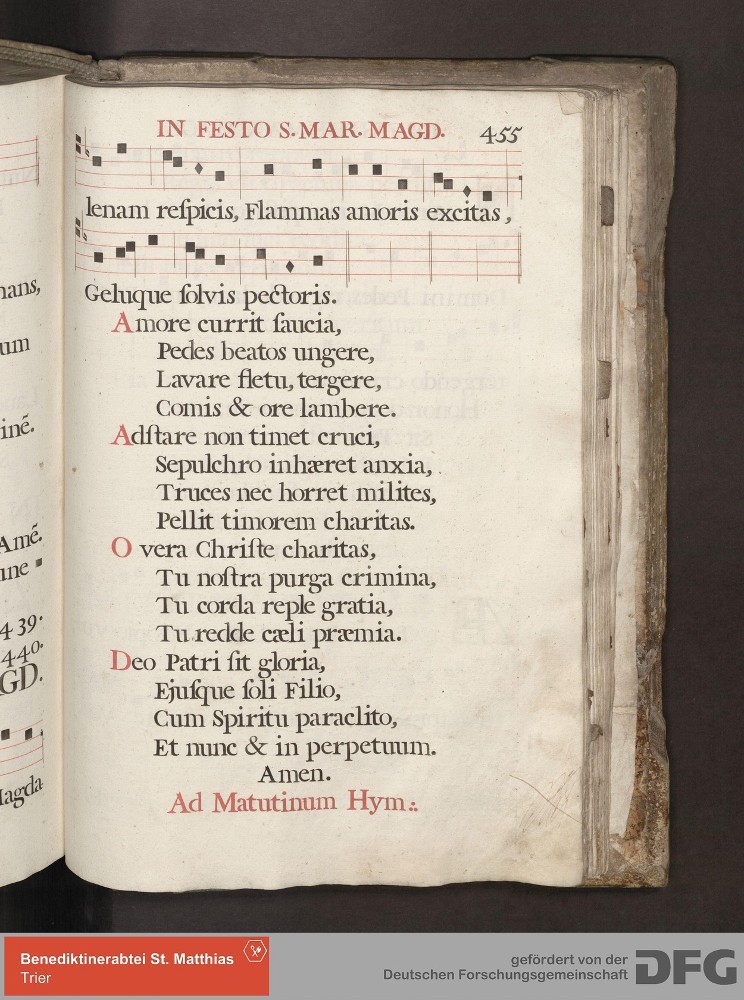 IN FESTO S. MAR. MAGD. 455
lenam reſpicis, Flammas amoris excitas,
Geluque ſolvis pectoris.
Amore currit ſaucia,
Pedes beatos ungere,
Lavare fletu, tergere,
Comis & ore lambere.
Adſtare non timet cruci,
Sepulchro inhæret anxia,
Truces nec horret milites,
Pellit timorem charitas.
O vera Chriſte charitas,
Tu noſtra purga crimina,
Tu corda reple gratia,
Tu redde cæli præmia.
Deo Patri ſit gloria,
Ejuſque ſoli Filio,
Cum Spiritu paraclito,
Et nunc & in perpetuum.
Amen.
Ad Matutinum Hym.:.
nans,
um
inẽ.
Amẽ.
une
439.
440.
GD.
Magda
Benediktinerabtei St. Matthias
Trier
gefördert von der
Deutschen Forschungsgemeinschaft
DFG